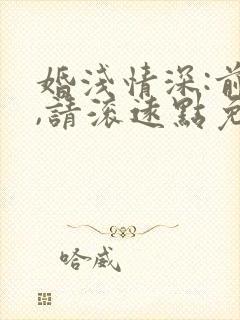 婚淺情深:前
,請滚遠點免
哈威